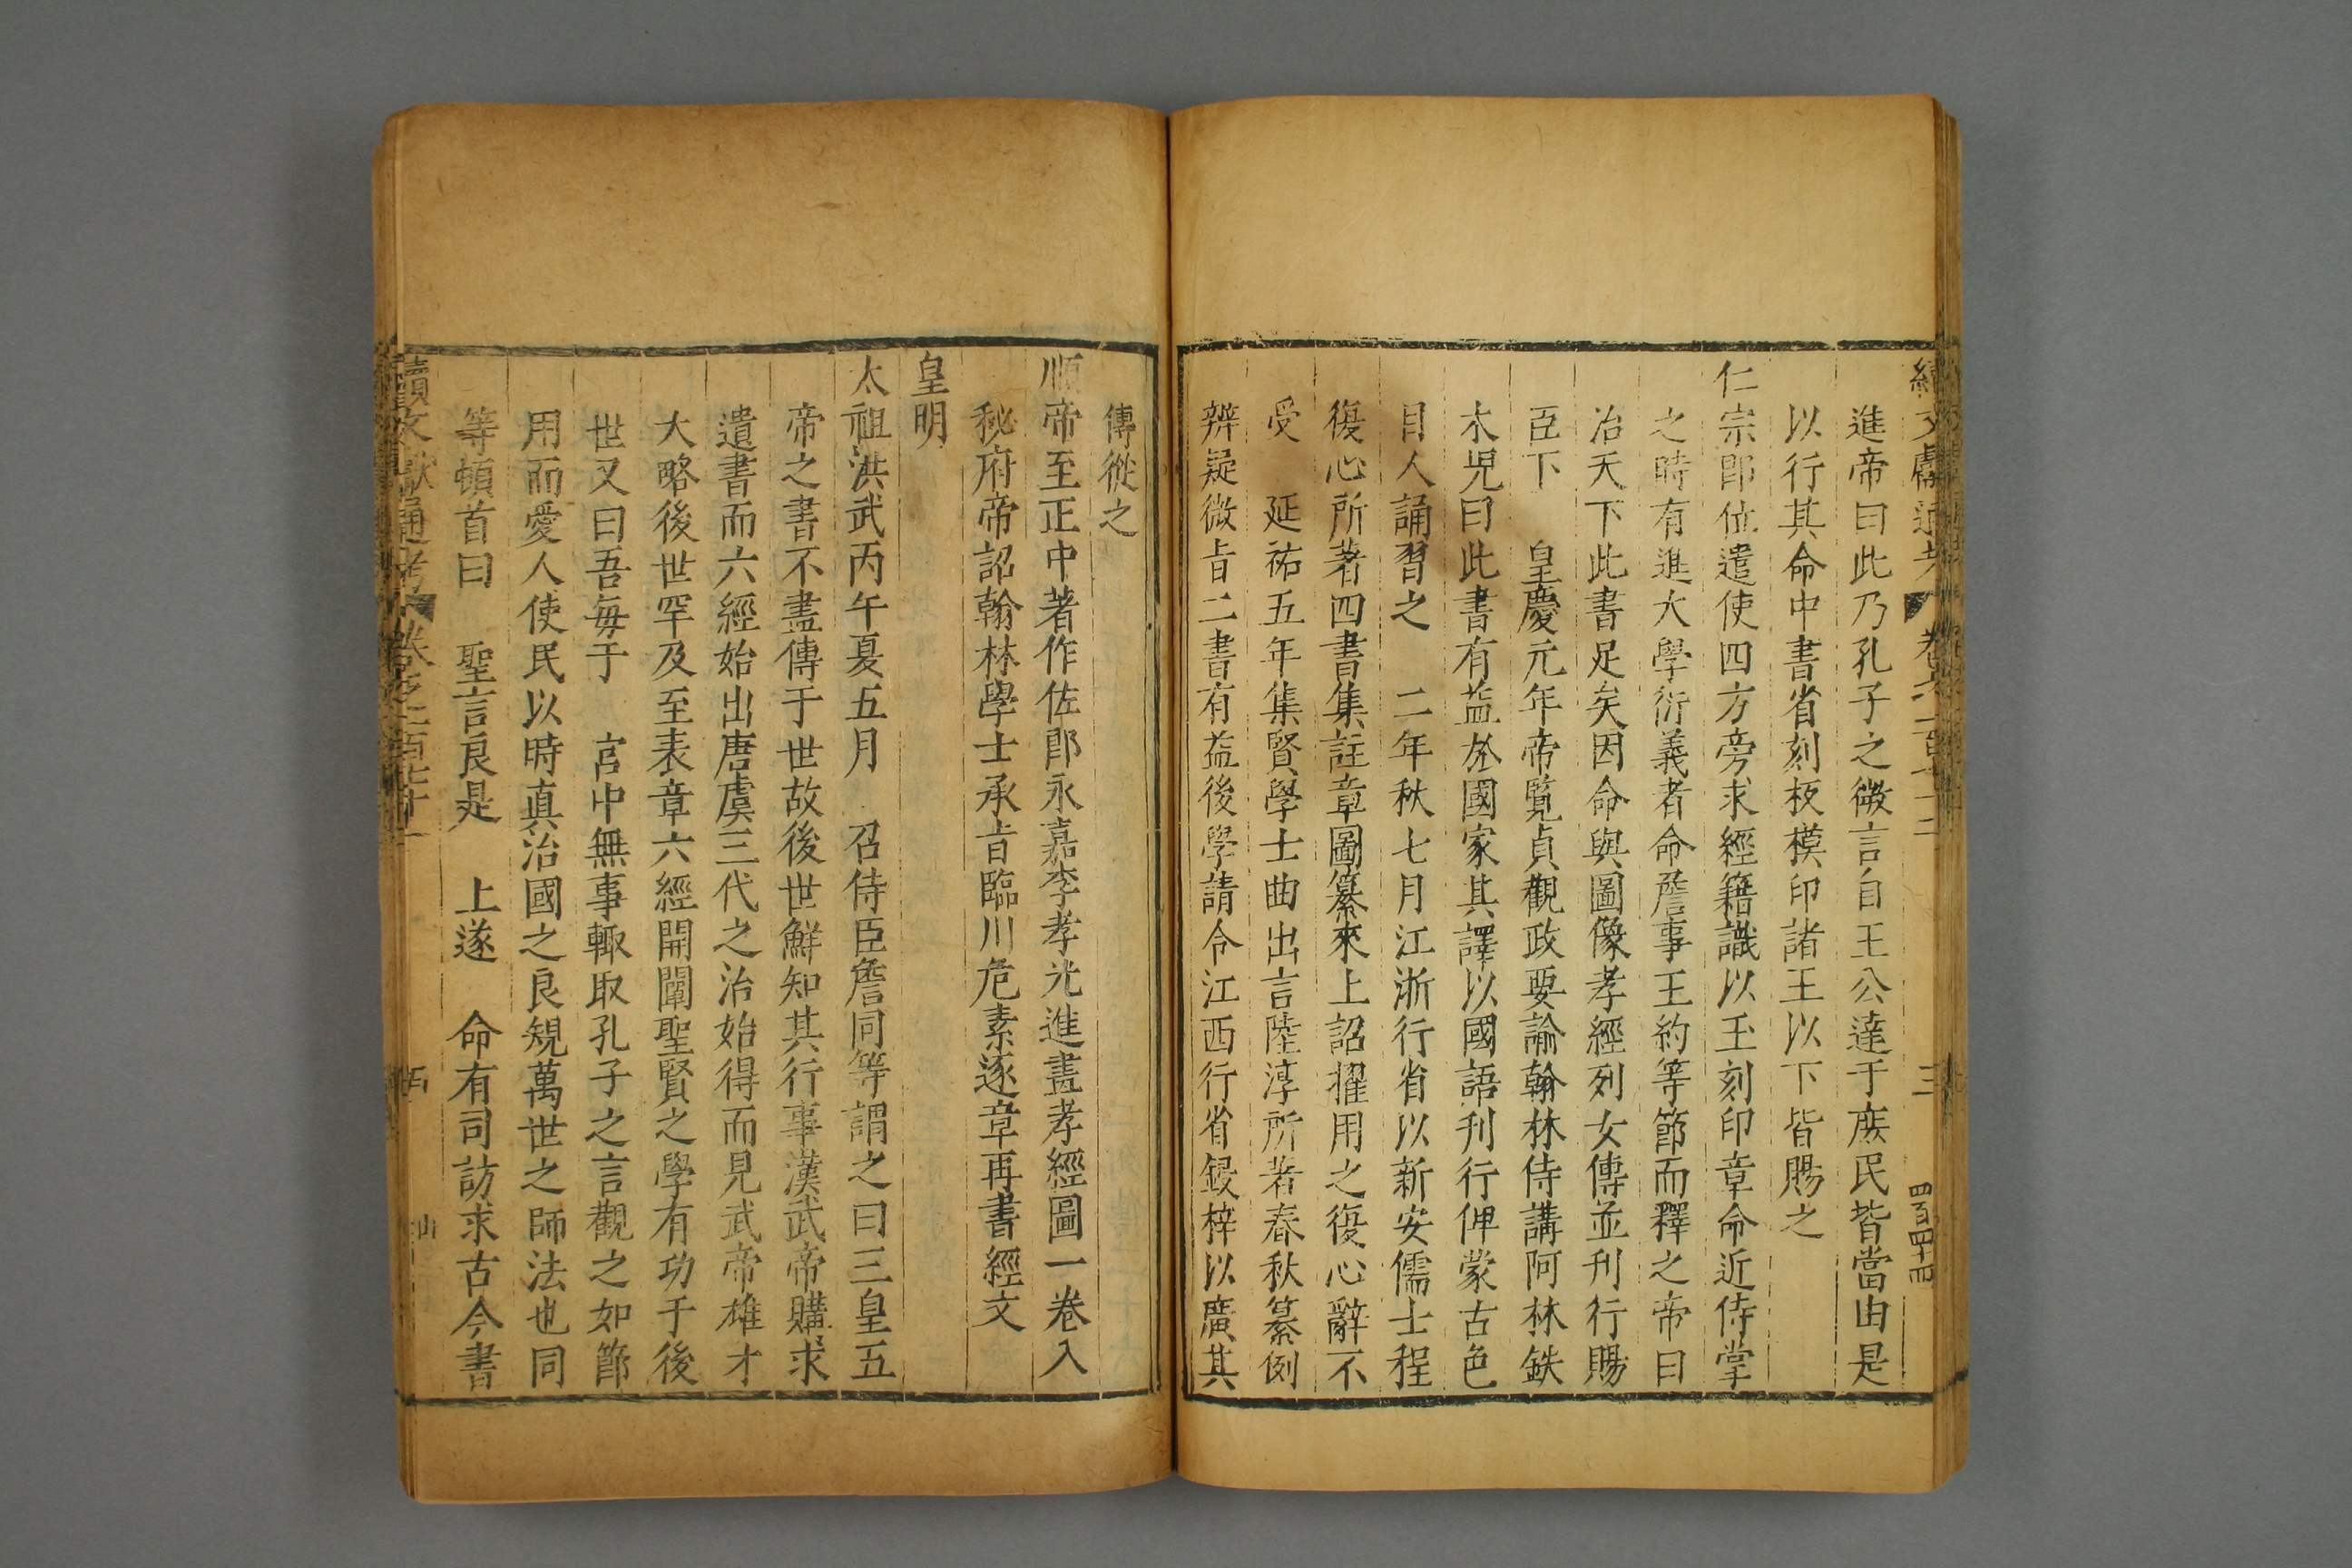 進帝曰此乃孔子之微言自王公達于庶民皆當由是
以行其命中書省刻板模印諸王以下皆賜之
仁宗卽位遣使四方旁求經籍識以玉刻印章命近侍掌
之時有進大學衍義者命詹事王約等節而釋之帝曰
治天下此書足矣因命與圖像孝經列女傳並刊行賜
臣下 皇慶元年帝覽貞觀政要諭翰林侍講阿林鉄
木児曰此書有益於國家其譯以國語刊行俾蒙古色
目人誦習之 二年秋七月江浙行省以新安儒士程
復心所著四書集註章圖纂來上詔擢用之復心辭不
受 延祐五年集賢學士曲出言陸淳所著春秋纂例
辨疑微旨二書有益後學請令江西行省鋟梓以廣其
傳從之
順帝至正中著作佐郎永嘉李孝光進畫孝經圖一卷入
秘府帝詔翰林學士承旨臨川危素逐章再書經文
皇明
太祖洪武丙午夏五月 召侍臣詹同等謂之曰三皇五
帝之書不盡傳于世故後世鮮知其行事漢武帝購求
遺書而六經始出唐虞三代之治始得而見武帝雄才
大略後世罕及至表章六經開闡聖賢之學有功于後
世又曰吾每于 宮中無事輙取孔子之言觀之如節
用而愛人使民以時真治國之良規萬世之師法也同
等頓首曰 聖言良是 上遂 命有司訪求古今書
續文獻通考 卷之